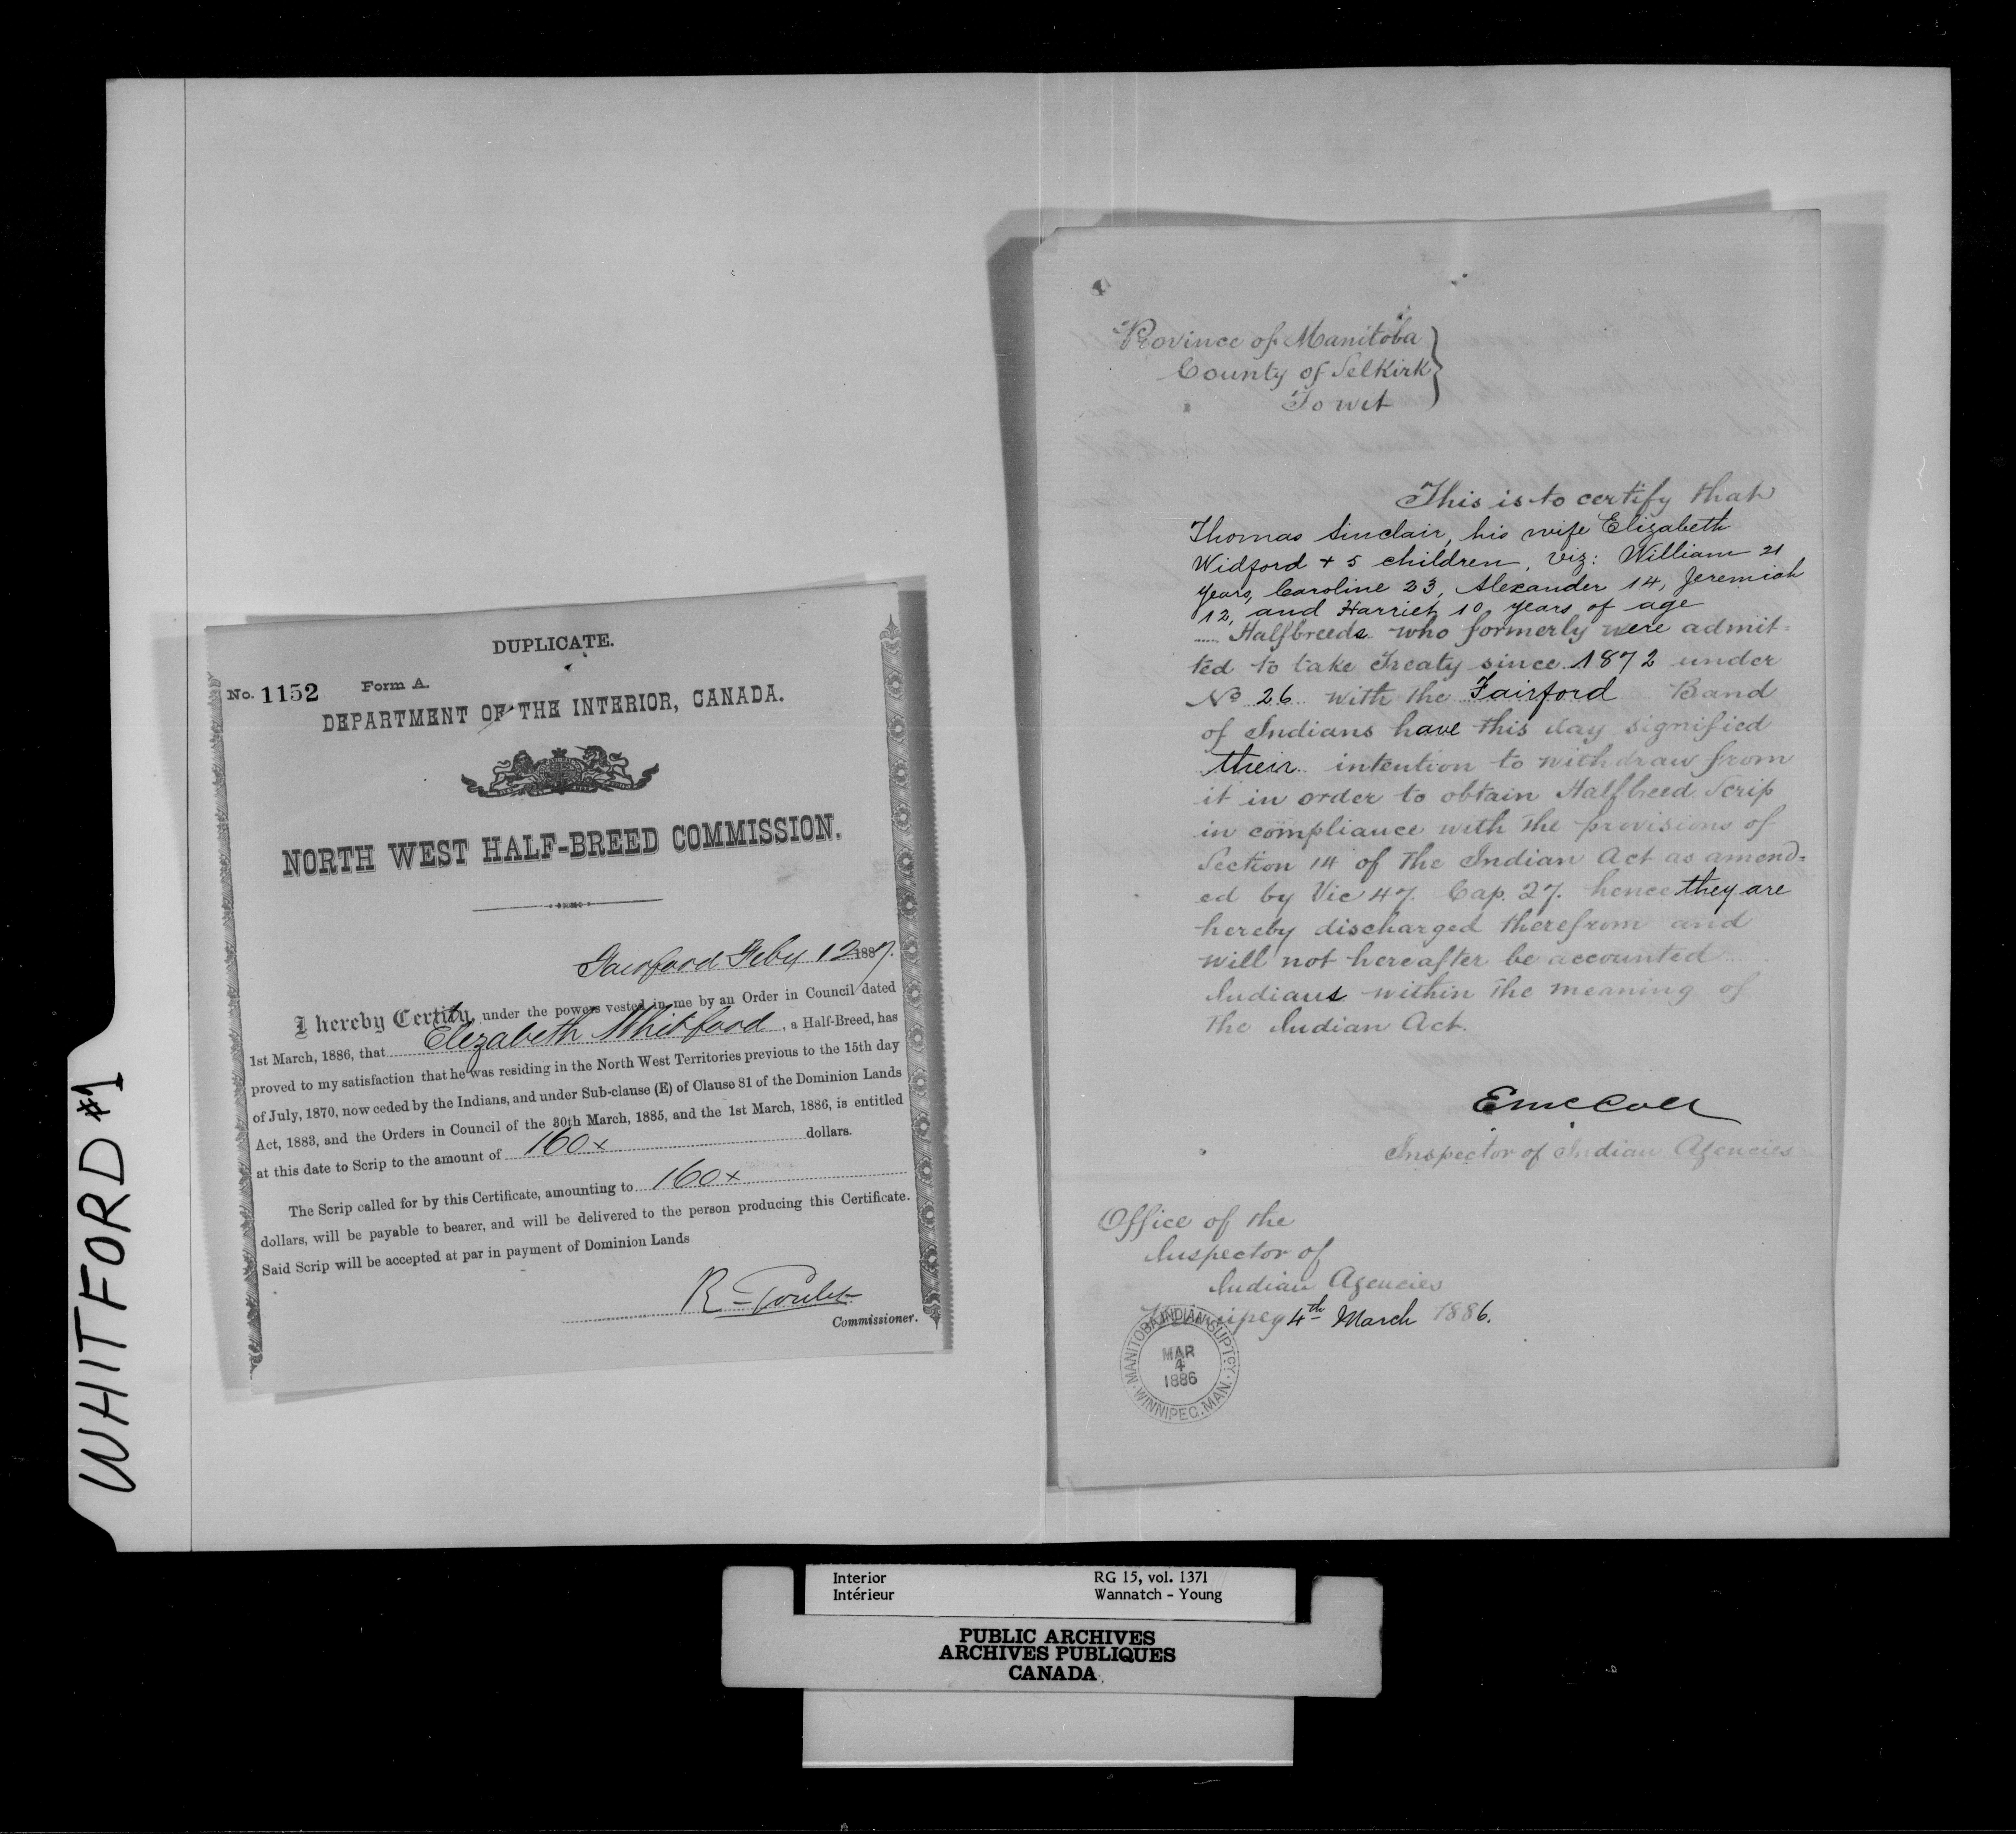 WHITFORD #1
DUPLICATE.
No. 1152 Form A.
DEPARTMENT OF THE INTERIOR, CANADA.
NORTH WEST HALF-BREED COMMISSION.
Fairford Feby 12 1887.
I hereby Certify, under the powers vested in me by an Order in Council dated
1st March, 1886, that Elizabeth Whitford, a Half-Breed, has
proved to my satisfaction that he was residing in the North West Territories previous to the 15th day
of July, 1870, now ceded by the Indians, and under Sub-clause (E) of Clause 81 of the Dominion Lands
Act, 1883, and the Orders in Council of the 30th March, 1885, and the 1st March, 1886, is entitled
at this date to Scrip to the amount of 160x dollars.
The Scrip called for by this Certificate, amounting to 160x
dollars, will be payable to bearer, and will be delivered to the person producing this Certificate.
Said Scrip will be accepted at par in payment of Dominion Lands
R Goulet
Commissioner.
Province of Manitoba
County of Selkirk
To wit
This is to certify that
Thomas Sinclair, his wife Elizabeth
Widford + 5 children, viz: William 21
years, Caroline 23, Alexander 14, Jeremiah
12, and Harriet 10 years of age
Halfbreeds who formerly were admit=
ted to take Treaty since 1872 under
No 26 with the Fairford Band
of Indians have this day signified
their intention to withdraw from
it in order to obtain Halfbreed Scrip
in compliance with the provisions of
Section 14 of the Indian Act as amend=
ed by Vic 47. Cap. 27. hence they are
hereby discharged therefrom and
will not hereafter be accounted
Indians within the meaning of
the Indian Act.
E McColl
Inspector of Indian Agencies
Office of the
Inspector of
Indian Agencies
Winnipeg 4th March 1886.
MANITOBA INDIAN SUPTCY.
MAR
4
1886
WINNIPEG. MAN.
Interior RG 15, vol. 1371
Intérieur Wannatch - Young
PUBLIC ARCHIVES
ARCHIVES PUBLIQUES
CANADA